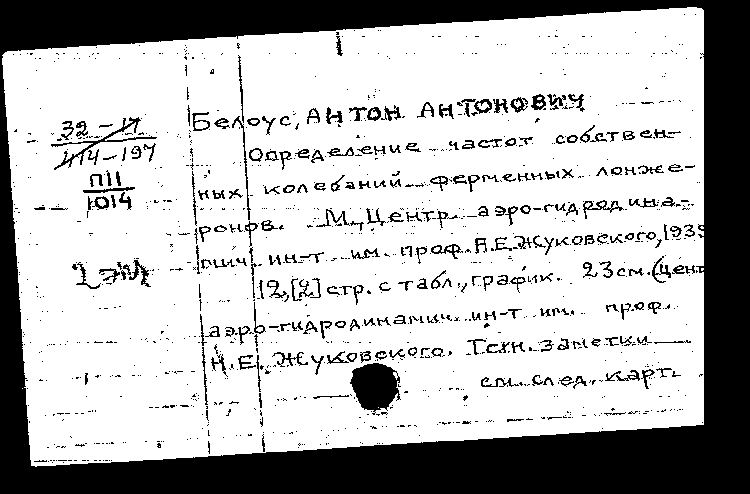 32-17
414-197
П11
1014
2 эм
Белоус, Антон Антонович
Определение частот собствен-
ных колебаний ферменных лонже-
ронов. М., Центр. аэро-гидродина-
мич. ин-т им. проф. Н.Е. Жуковского, 1939
12, [2] стр. с табл., график. 23 см. (Цент
аэро-гидродинамич. ин-т им. проф.
Н.Е. Жуковского. Техн. заметки
см. след. карт.